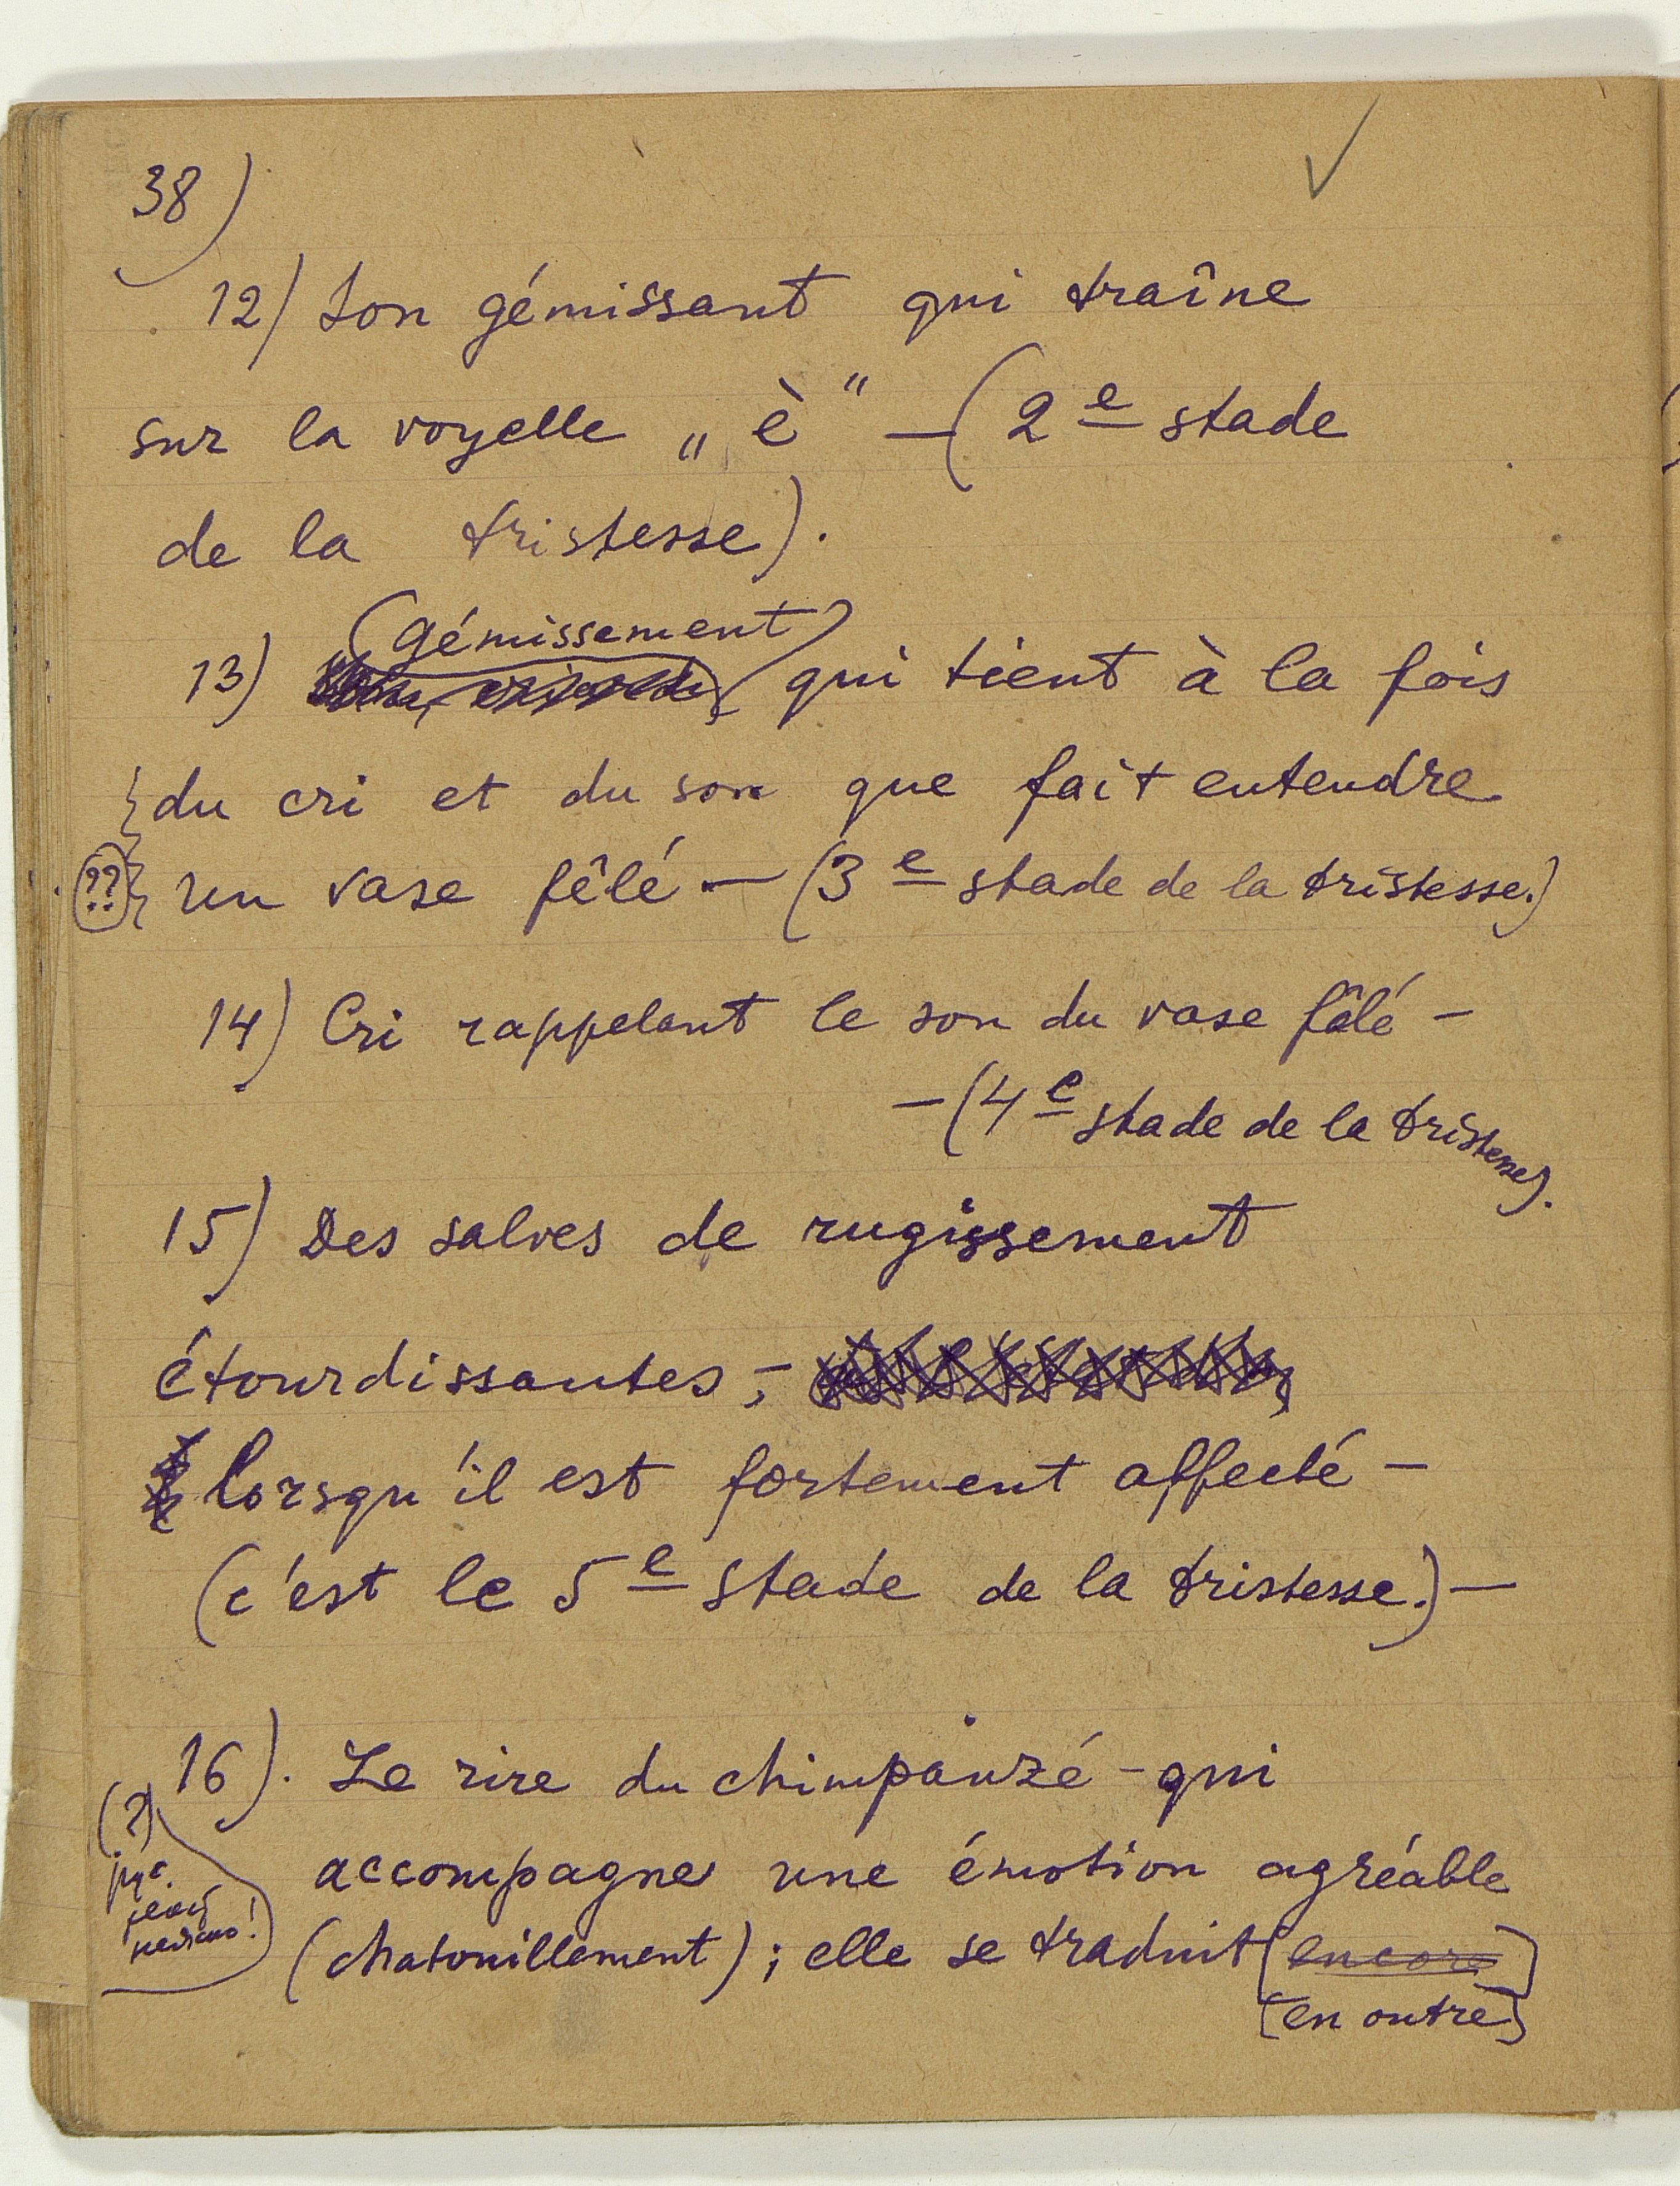 38)
12) Son gémissant qui traîne
sur la voyelle „è" — (2e stade
de la tristesse).
(gémissement)
13) qui tient à la fois
du cri et du son que fait entendre
(??) un vase fêlé — (3e stade de la tristesse.)
14) Cri rappelant le son du vase fêlé —
— (4e stade de la tristesse).
15) Des salves de rugissement
étourdissantes, —
lorsqu'il est fortement affecté —
(c'est le 5e stade de la tristesse.) —
16). Le rire du chimpanzé — qui
(?)
accompagne une émotion agréable
(chatouillement); elle se traduit [encore]
[en outre]